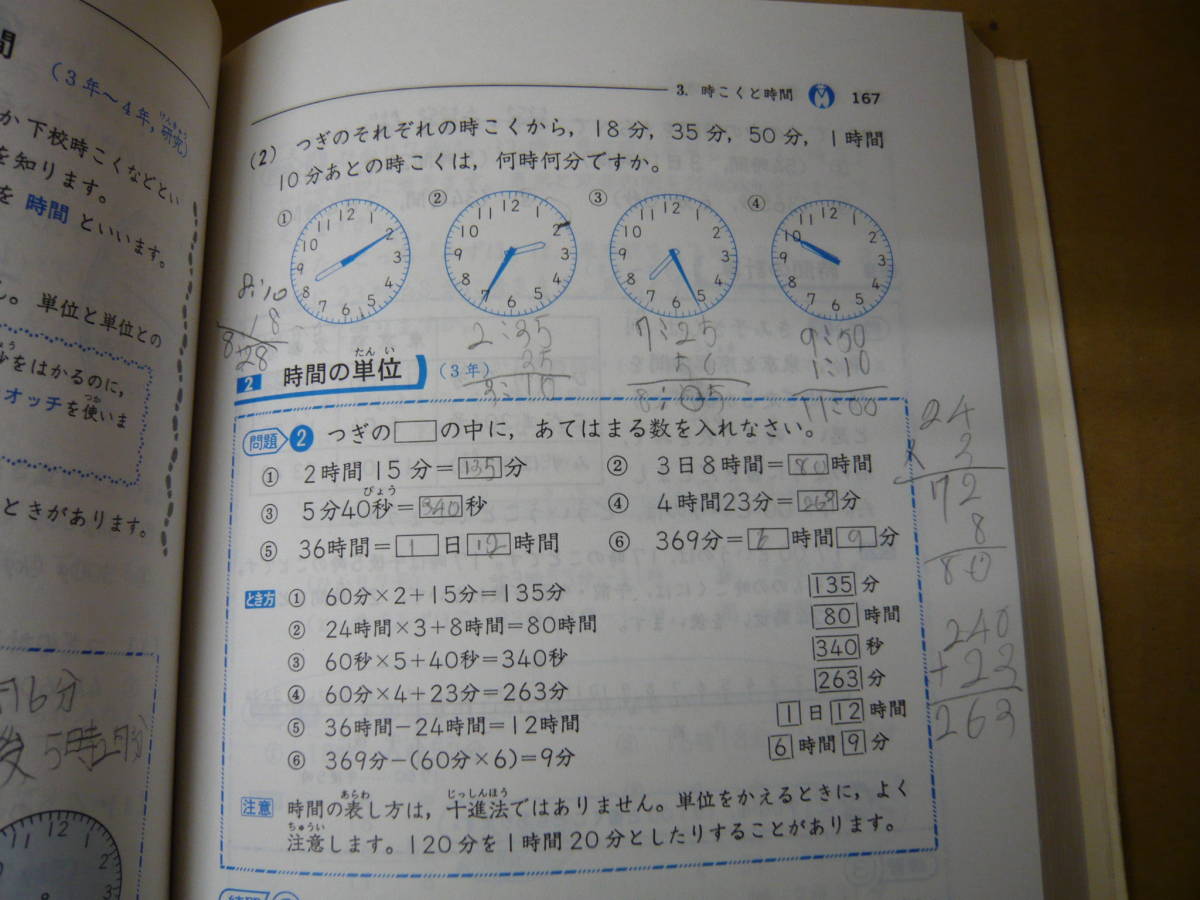 間
(3年～4年,研究)
けんきゅう
か下校時こくなどとい
を知ります。
を 時間 といいます。
ん。単位と単位との
をはかるのに,
オッチを使いま
つか
ときがあります。
16分
後 5時
3. 時こくと時間 167
(2) つぎのそれぞれの時こくから, 18分, 35分, 50分, 1時間
10分あとの時こくは, 何時何分ですか。
① ② ③ ④
12 1 2 3 4 5 6 7 8 9 10 11
12 1 2 3 4 5 6 7 8 9 10 11
12 1 2 3 4 5 6 7 8 9 10 11
12 1 2 3 4 5 6 7 8 9 10 11
8:10
18
8:28
2:35
35
3:10
7:25
50
8:05
9:50
1:10
11:00
たん い
2 時間の単位 (3年)
問題 2 つぎの□の中に, あてはまる数を入れなさい。
① 2時間15分=135分
② 3日8時間=80時間
びょう
③ 5分40秒=340秒
④ 4時間23分=263分
⑤ 36時間=1日12時間
⑥ 369分=6時間9分
24
× 3
72
8
80
240
+23
263
とき方 ① 60分×2+15分=135分 135分
② 24時間×3+8時間=80時間 80時間
③ 60秒×5+40秒=340秒 340秒
④ 60分×4+23分=263分 263分
⑤ 36時間-24時間=12時間 1日12時間
⑥ 369分-(60分×6)=9分 6時間9分
あらわ じっしんほう
注意 時間の表し方は, 十進法ではありません。単位をかえるときに, よく
ちゅうい
注意します。120分を1時間20分としたりすることがあります。
11 12 1 2 3